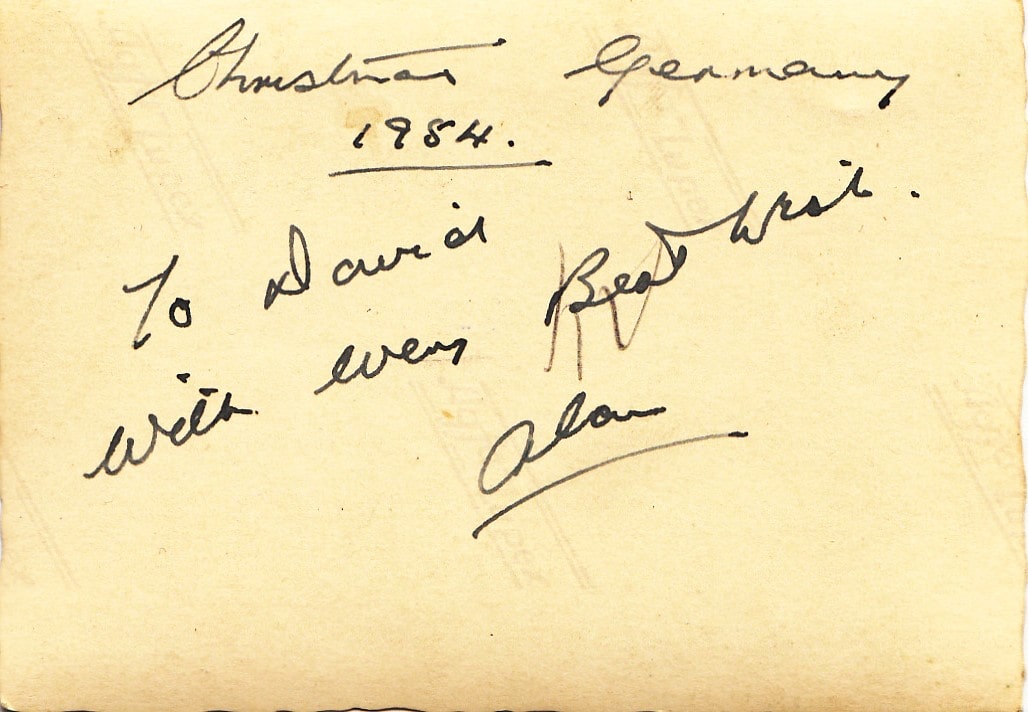 Christmas Germany
1954.
To David
with every Best Wish.
Alan